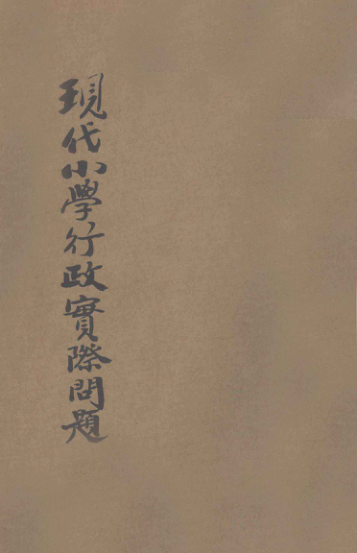 現代小學行政實際問題